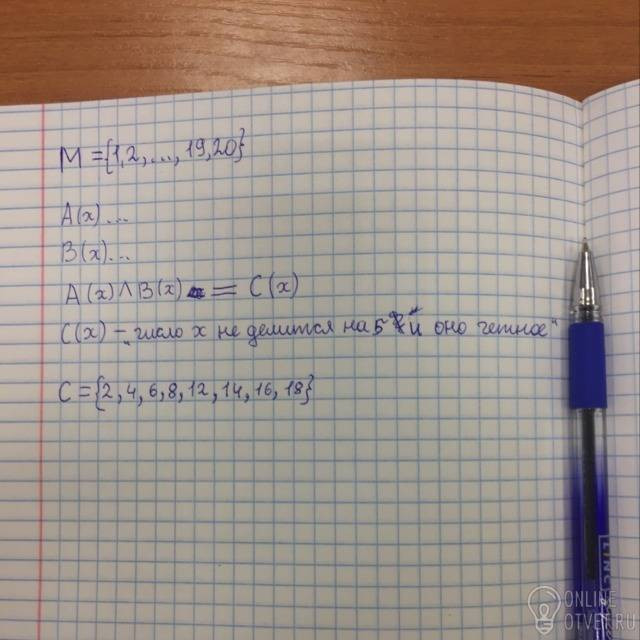 M = {1,2,...,19,20}
A(x)...
B(x)...
A(x)∧B(x) = C(x)
C(x) – „число x не делится на 5 и оно четное"
C = {2,4,6,8,12,14,16,18}
ONLINE
OTVET.RU